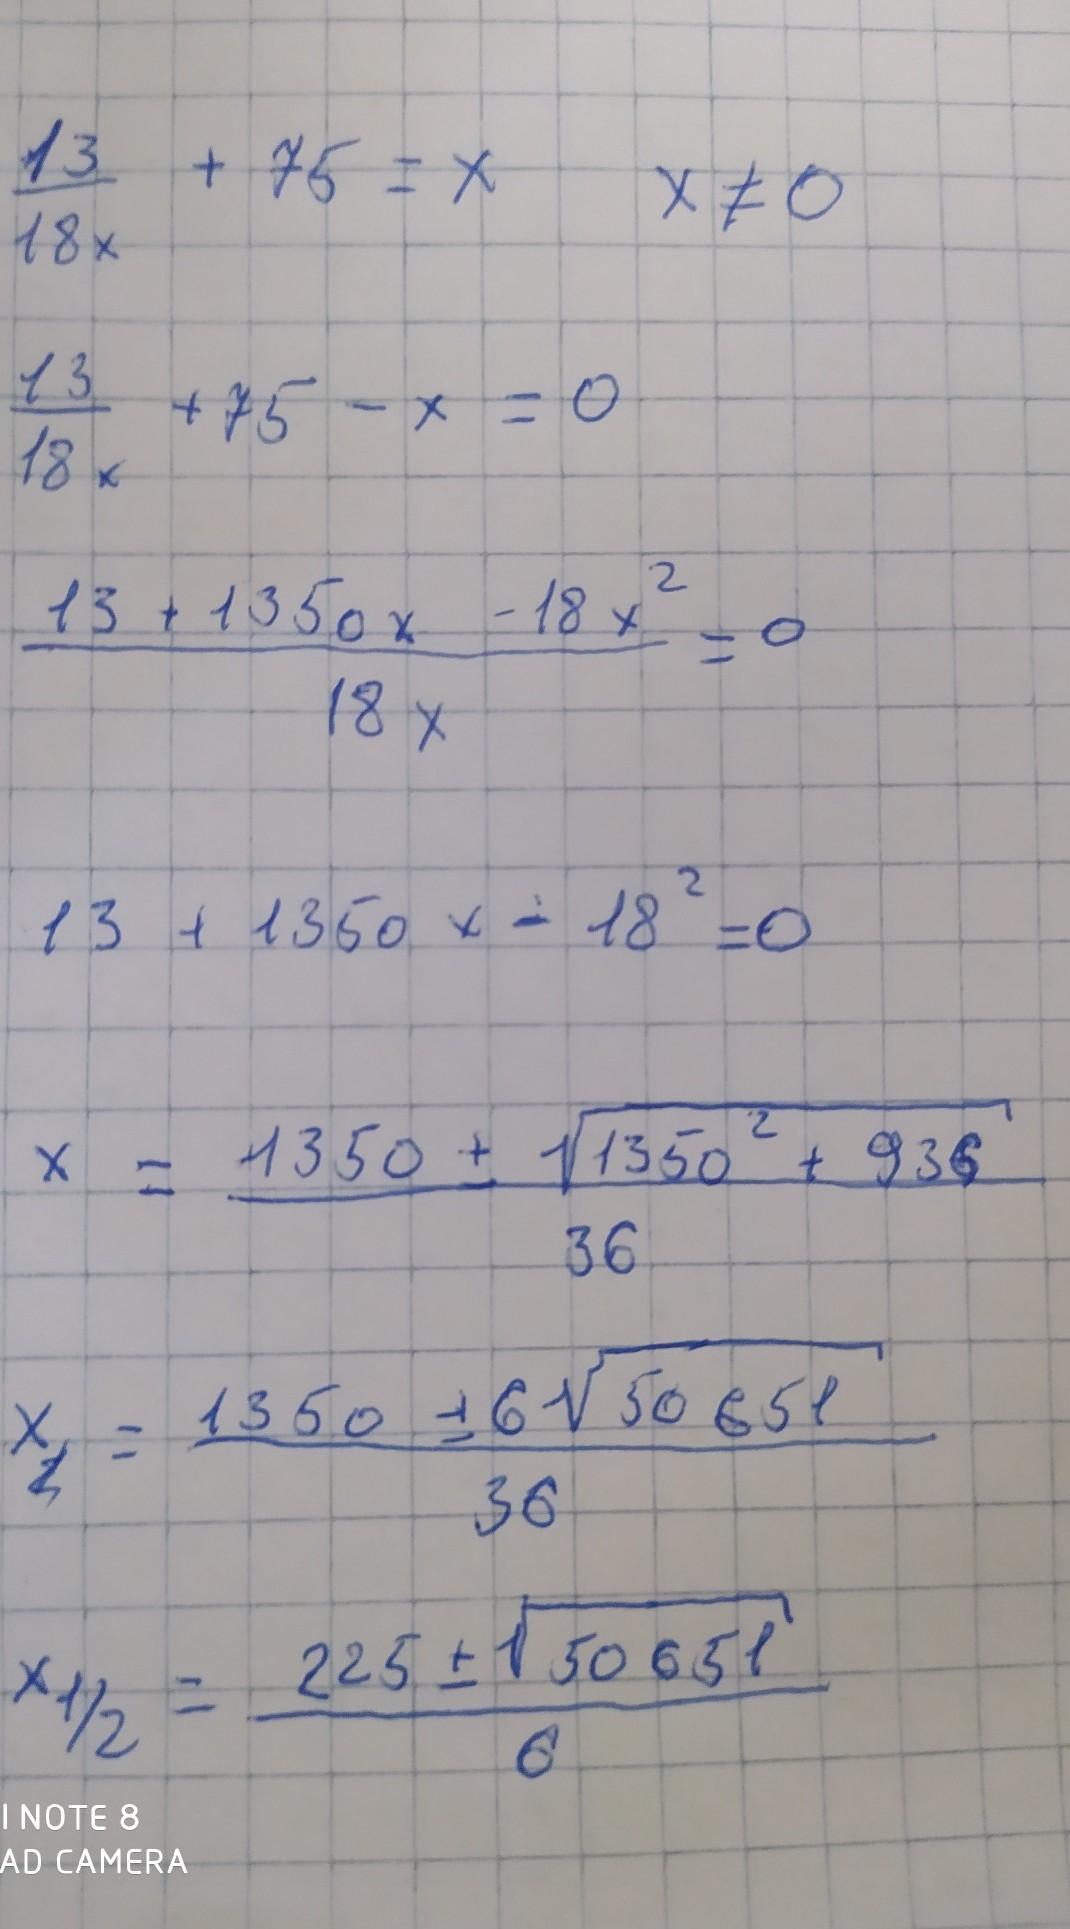 13/18x + 75 = x x ≠ 0
13/18x + 75 - x = 0
(13 + 1350x - 18x²)/18x = 0
13 + 1350x - 18² = 0
x = (1350 ± √(1350² + 936))/36
x₁ = (1350 ± 6√(50651))/36
x₁/₂ = (225 ± √(50651))/6
I NOTE 8
AD CAMERA